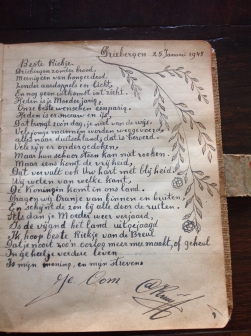 Driebergen 25 Januari 1945
Beste Riekje.
Driebergen zonder brood.
Menigeen van honger dood.
Zonder aardappels en licht,
En nog geen uitkomst in 't zicht.
Heden is je Moeder jarig,
Onze beste wenschen
Heden is er sneeuw en ijs,
Dat brengt zoo'n dag je wel van de wijs.
Vele jonge mannen werden weggevoerd
alles naar duitschland, dat is beroerd.
Vele zijn er ondergedoken,
Maar hun schoorsteen kan niet rooken.
Maar eens komt de vrijheid,
Dat vervult ook Uw hart met blijheid.
Wij weten van welke kant.
De Koningin komt in ons land.
Dragen wij Oranje van binnen en buiten
En schijnt de zon bij alle door de ruiten.
Als dan je Moeder weer verjaard,
Is de vijand het land uitgejaagd
Ik hoop beste Riekje van de Breul
Dat je nooit zoo'n oorlog meer mee maakt, of geheul
In geheel je verdere leven
Is mijn mening, en mijn streven
Je Oom